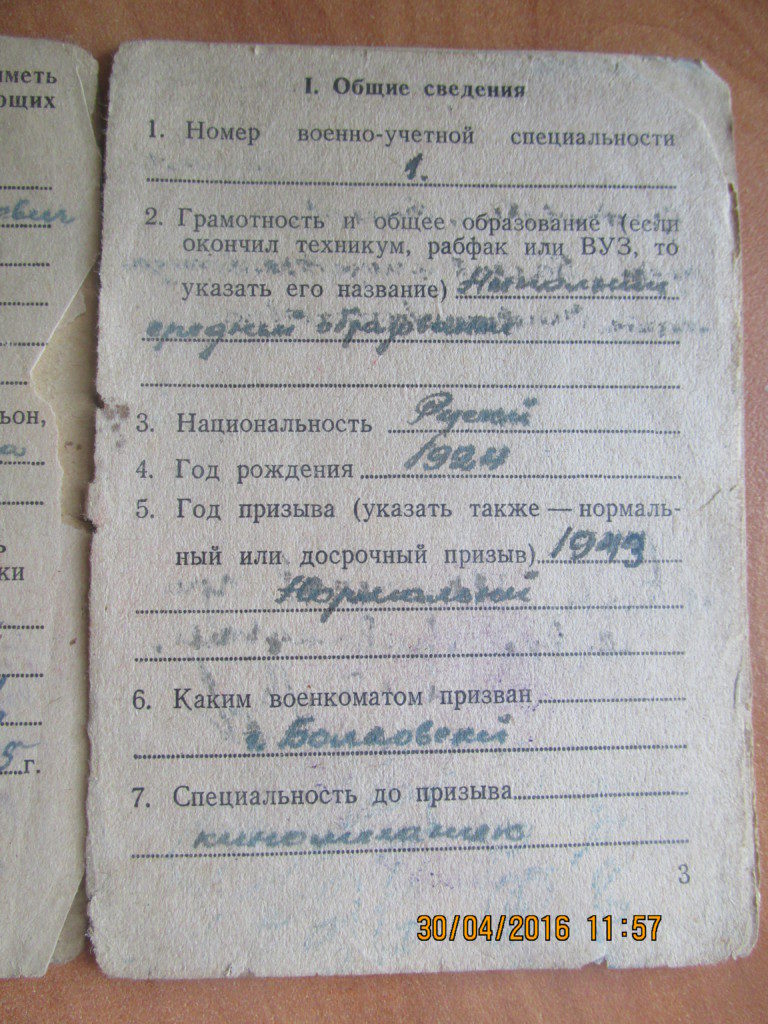 иметь
ющих
евич
ьон,
а
ь
ки
5 г.
I. Общие сведения
1. Номер военно-учетной специальности
1.
2. Грамотность и общее образование (если
окончил техникум, рабфак или ВУЗ, то
указать его название)
средний образование
3. Национальность Руский
4. Год рождения 1924
5. Год призыва (указать также — нормаль-
ный или досрочный призыв) 1943
Нормальный
6. Каким военкоматом призван
г.
7. Специальность до призыва
киномеханик
3
30/04/2016 11:57